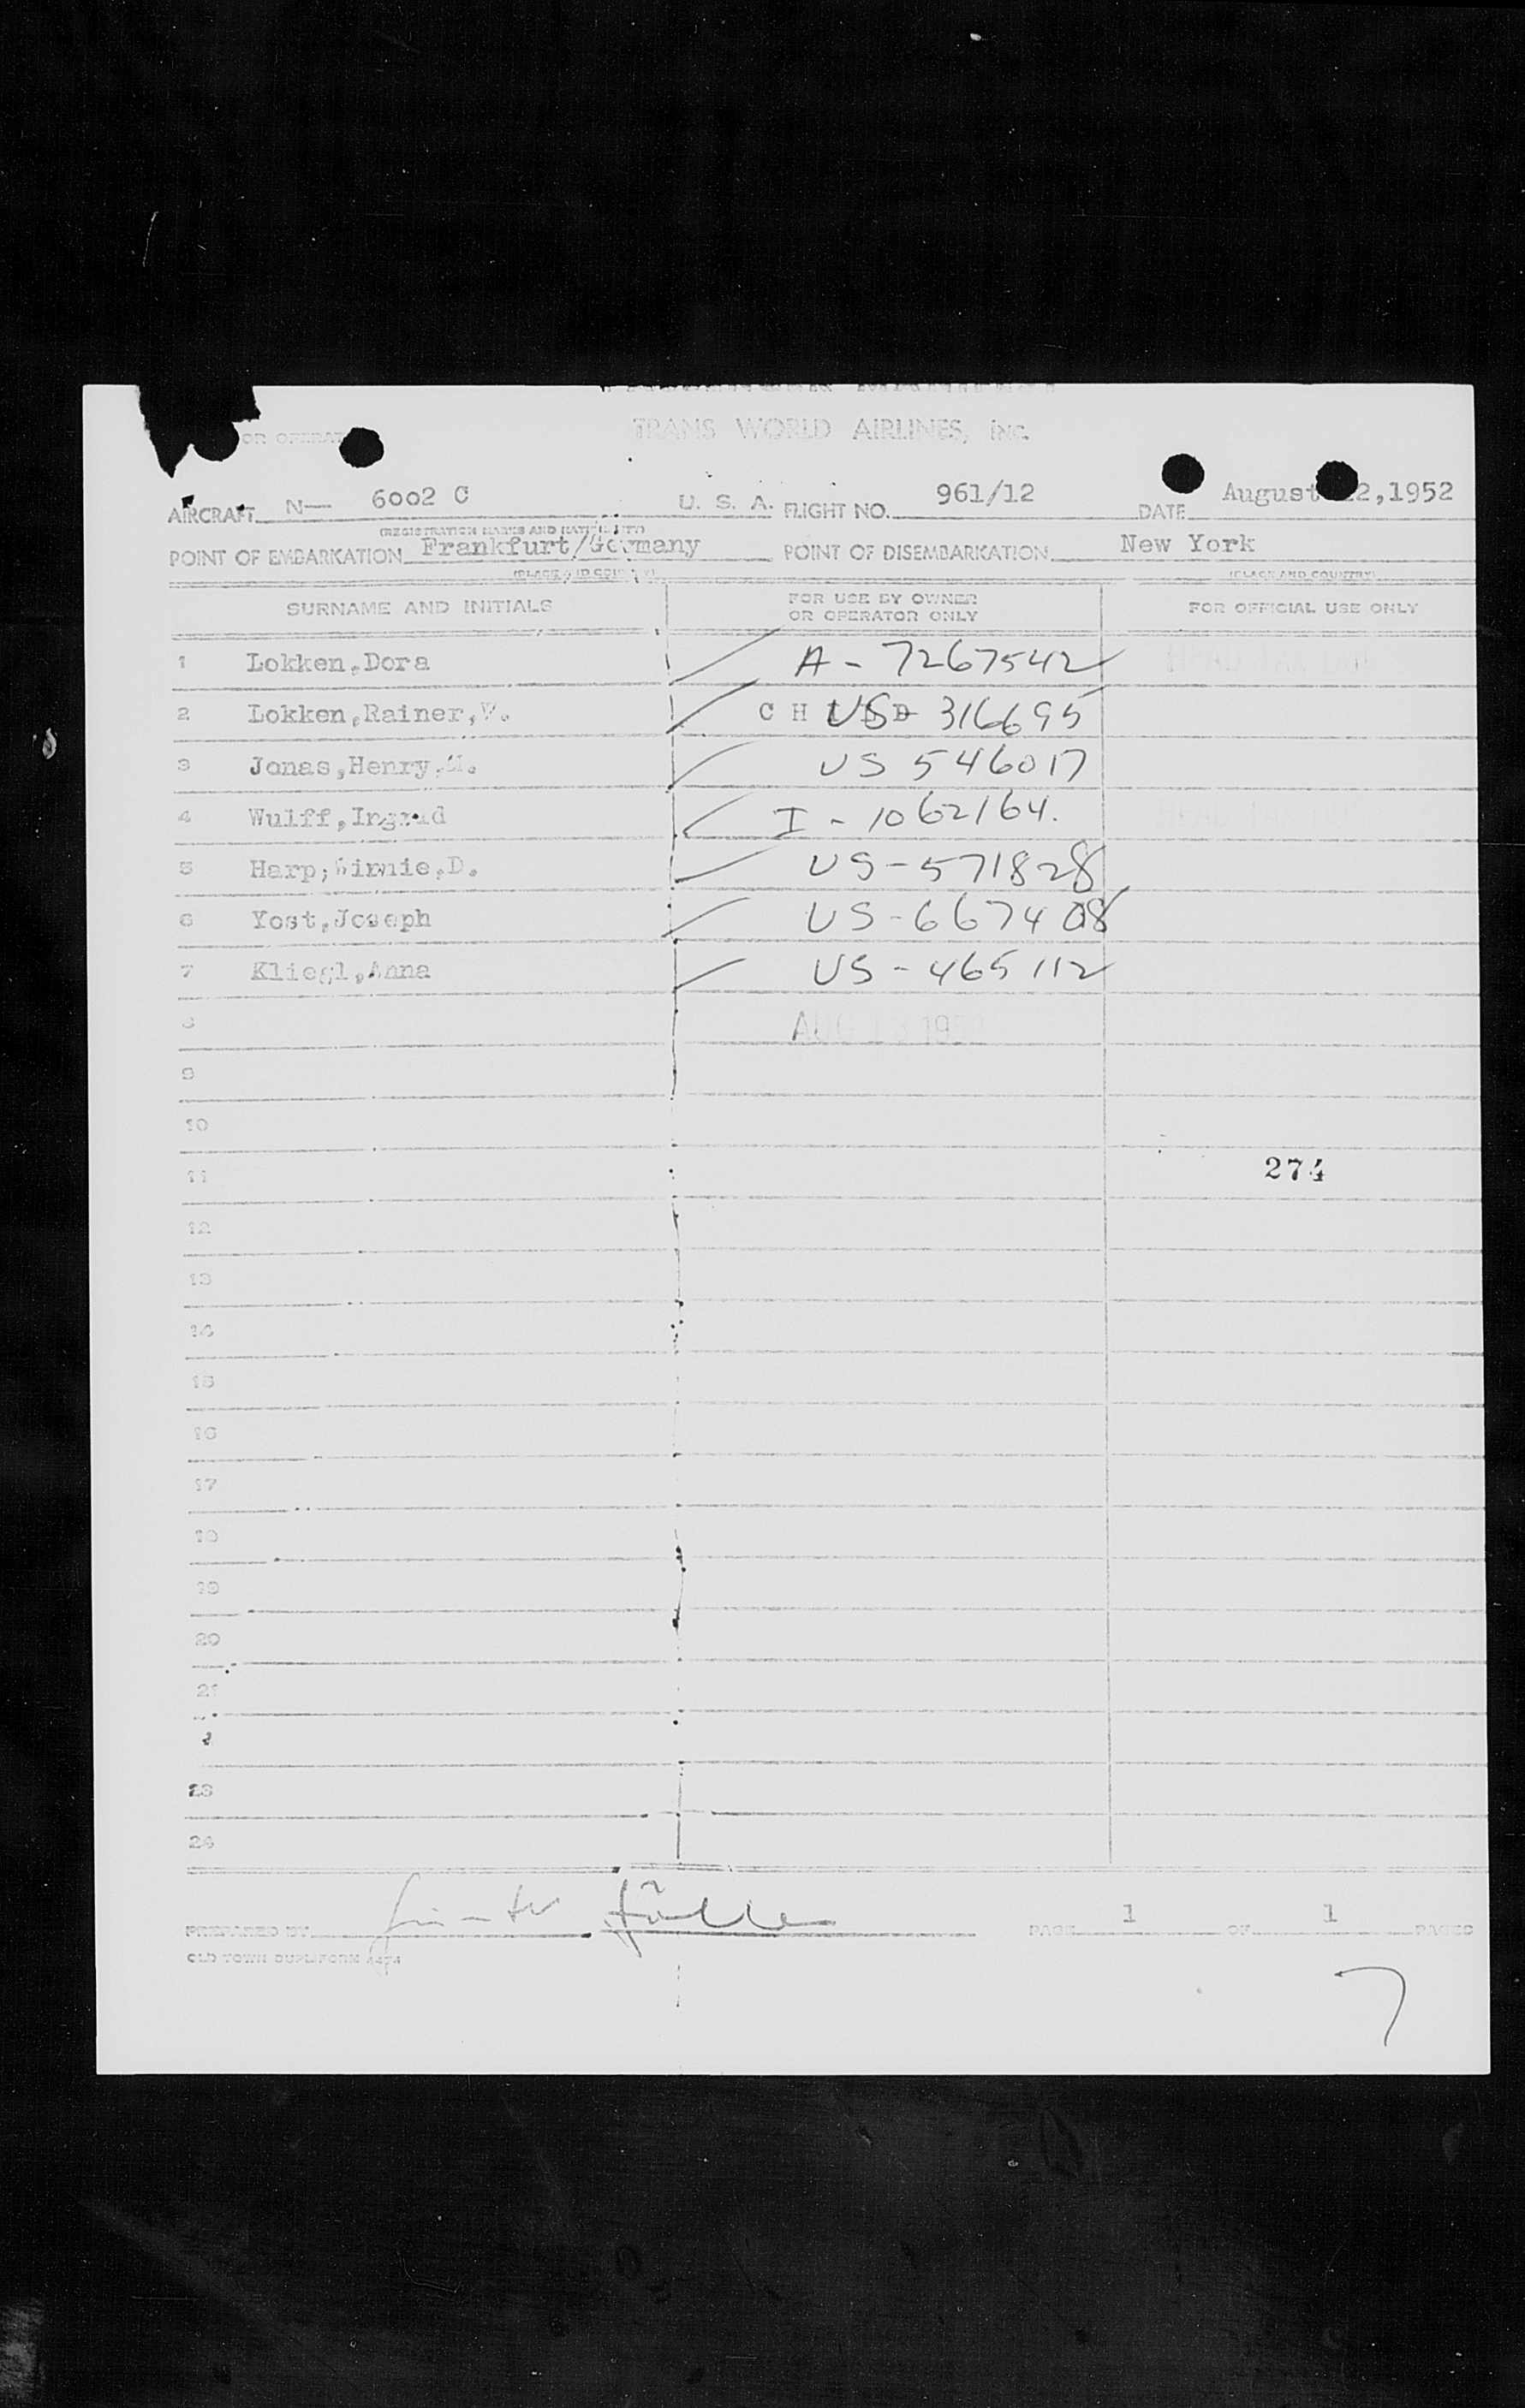 OR OPERAT
TRANS WORLD AIRLINES, INC.
AIRCRAFT N— 6002 C U. S. A. FLIGHT NO. 961/12 DATE August 2,1952
(REGISTRATION MARKS AND NATIONALITY)
POINT OF EMBARKATION Frankfurt/Germany POINT OF DISEMBARKATION New York
(PLACE AND COUNTRY) (PLACE AND COUNTRY)
SURNAME AND INITIALS FOR USE BY OWNER OR OPERATOR ONLY FOR OFFICIAL USE ONLY
1 Lokken,Dora A - 7267542
2 Lokken,Rainer, C H I L D US 316695
3 Jonas,Henry, US 546017
4 Wulff,Ingrid I - 1062164.
5 Harp, D. US - 571828
6 Yost,Joseph US - 667408
7 Kliegl,Anna US - 465112
8 AUG 13 1952
9
10
11 274
12
13
14
15
16
17
18
19
20
21
23
24
PREPARED BY PAGE 1 OF 1 PAGES
OLD TOWN DUPLIFORM
7